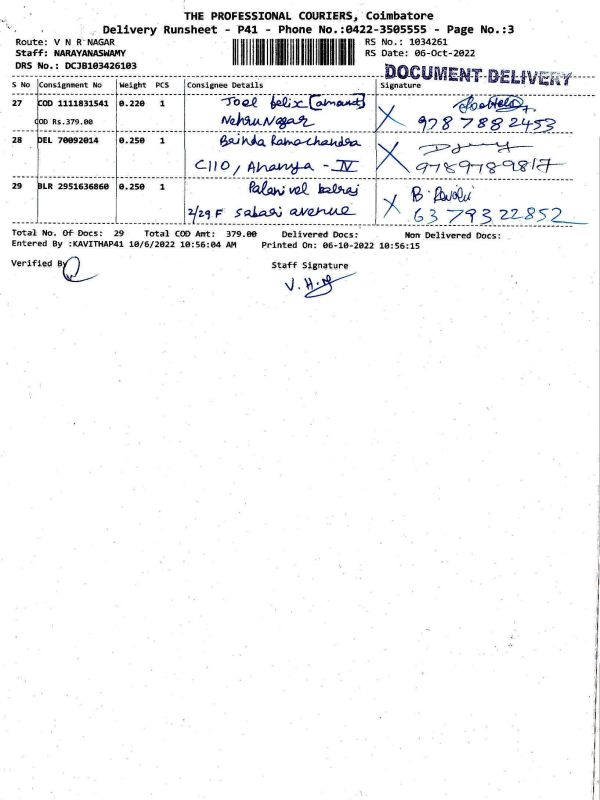 THE PROFESSIONAL COURIERS, Coimbatore
Delivery Runsheet - P41 - Phone No.:0422-3505555 - Page No.:3
Route: V N R NAGAR RS No.: 1034261
Staff: NARAYANASWAMY RS Date: 06-Oct-2022
DRS No.: DCJB103426103
DOCUMENT DELIVERY
S No Consignment No Weight PCS Consignee Details Signature
27 COD 1111831541 0.220 1 Joel felix [amount]
COD Rs.379.00 Nehru Nagar 9787882453
28 DEL 70092014 0.250 1 Brinda Ramachandra
C110, Ananya - IV 9789789817
29 BLR 2951636860 0.250 1 Palanivel
2/29 F sabari avenue 6379322852
Total No. Of Docs: 29 Total COD Amt: 379.00 Delivered Docs: Non Delivered Docs:
Entered By :KAVITHAP41 10/6/2022 10:56:04 AM Printed On: 06-10-2022 10:56:15
Verified By
Staff Signature